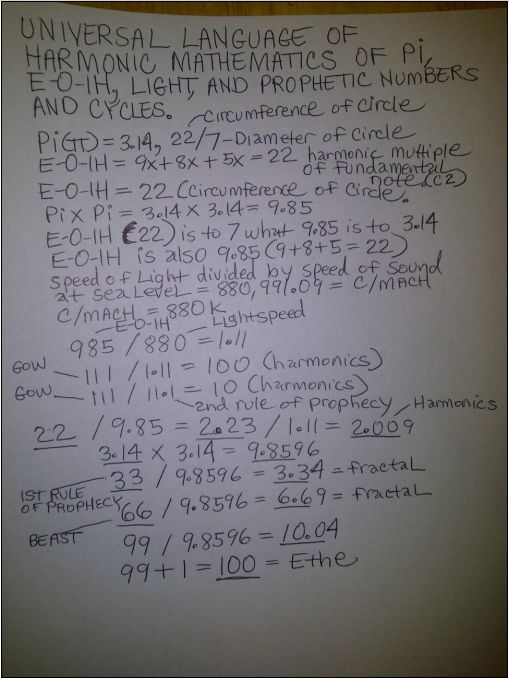 UNIVERSAL LANGUAGE OF
HARMONIC MATHEMATICS OF Pi,
E-O-IH, LIGHT, AND PROPHETIC NUMBERS
AND CYCLES.
circumference of circle
Pi(π) = 3.14, 22/7-Diameter of circle
E-O-IH = 9x+8x+5x = 22 harmonic multiple
of fundamental
note (C2)
E-O-IH = 22 (circumference of circle.
Pi x Pi = 3.14 x 3.14 = 9.85
E-O-IH (22) is to 7 what 9.85 is to 3.14
E-O-IH is also 9.85 (9+8+5 = 22)
Speed of Light divided by speed of sound
at sea LeveL = 880,991.09 = C/MACH
C/MACH = 880K
E-O-IH Lightspeed
985 / 880 = 1.11
GOW 111 / 1.11 = 100 (harmonics)
GOW 111 / 11.1 = 10 (harmonics)
2nd rule of prophecy Harmonics
22 / 9.85 = 2.23 / 1.11 = 2.009
3.14 x 3.14 = 9.8596
33 / 9.8596 = 3.34 = fractaL
1ST RULE
OF PROPHECY
66 / 9.8596 = 6.69 = fractaL
BEAST
99 / 9.8596 = 10.04
99 + 1 = 100 = Ethe